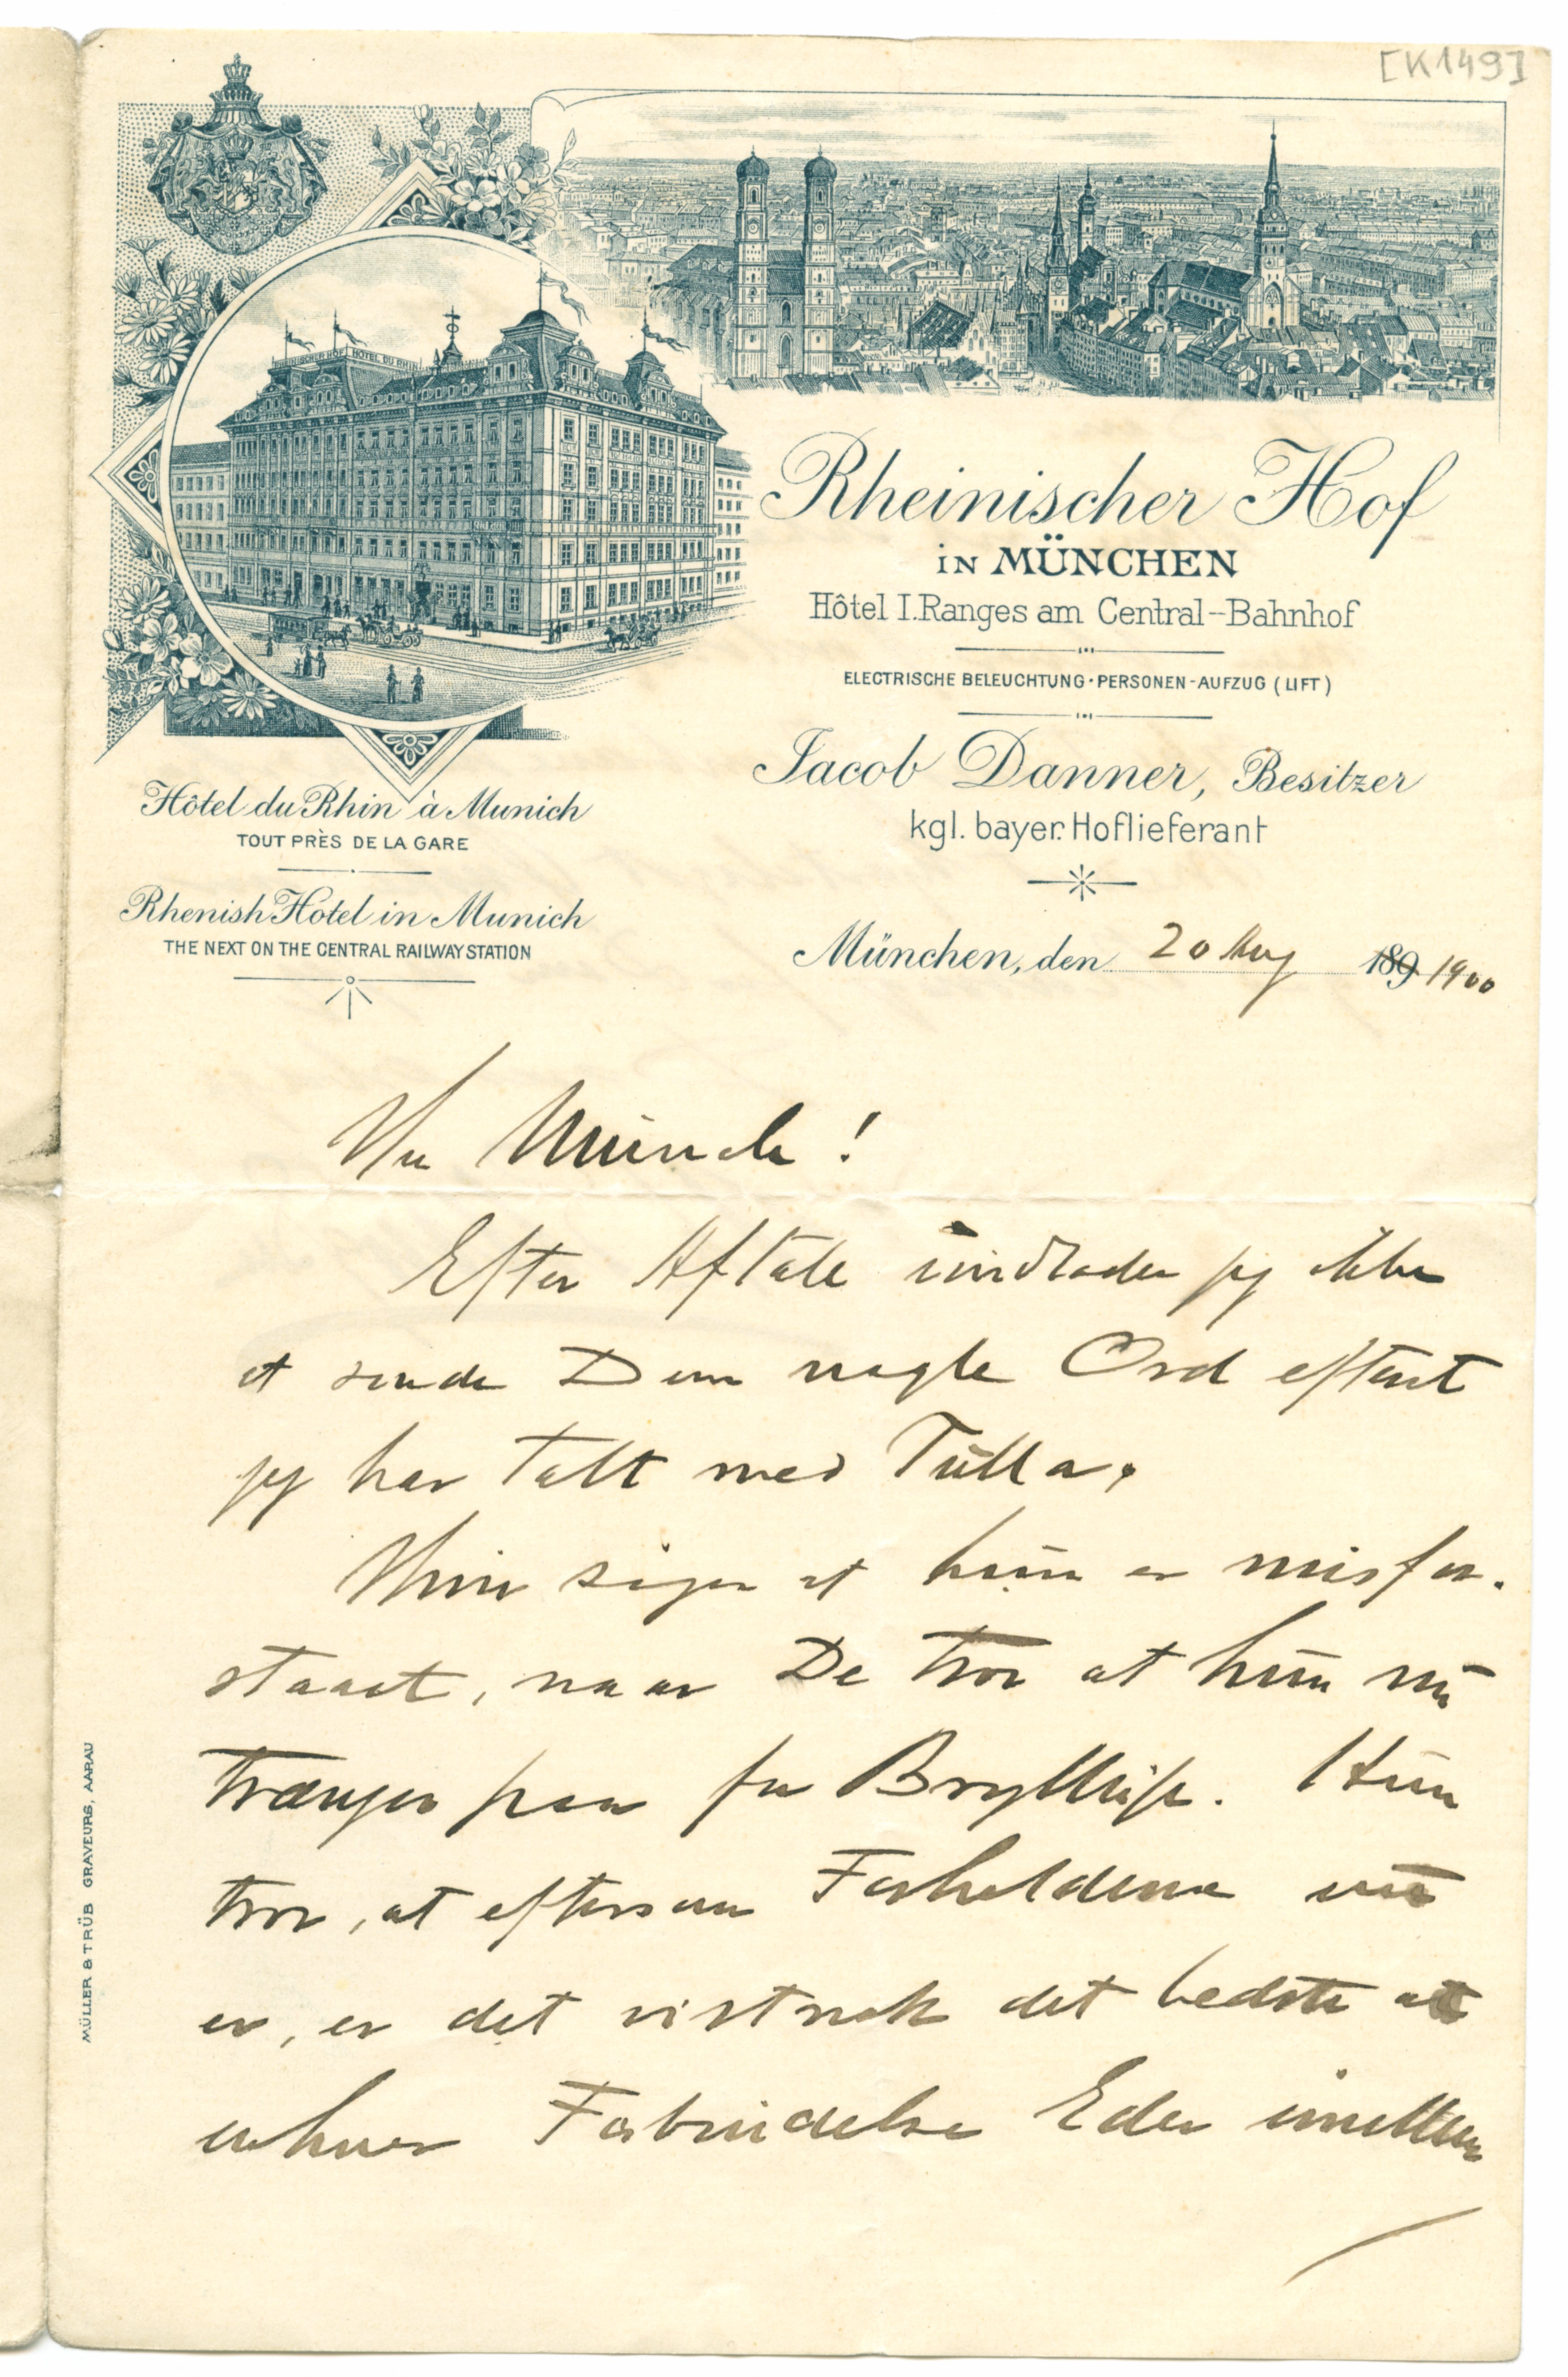 [K149]
RHEINISCHER HOF HÔTEL DU RHIN
Rheinischer Hof
IN MÜNCHEN
Hôtel I. Ranges am Central-Bahnhof
ELECTRISCHE BELEUCHTUNG • PERSONEN-AUFZUG (LIFT)
Jacob Danner, Besitzer
kgl. bayer. Hoflieferant
Hôtel du Rhin à Munich
TOUT PRÈS DE LA GARE
Rhenish Hotel in Munich
THE NEXT ON THE CENTRAL RAILWAY STATION
München, den 20 Aug 189 1900
Hr Munch!
Efter Aftale undlader jeg ikke
at sende Dem nogle Ord efterat
jeg har talt med Tulla.
Hun siger at hun er misfor-
staaet, naar De tror at hun nu
trænger paa for Bryllup. Hun
tror, at eftersom Forholdene nu
er, er det vistnok det bedste at
enhver Forbindelse Eder imellem
MÜLLER & TRÜB GRAVEURS, AARAU